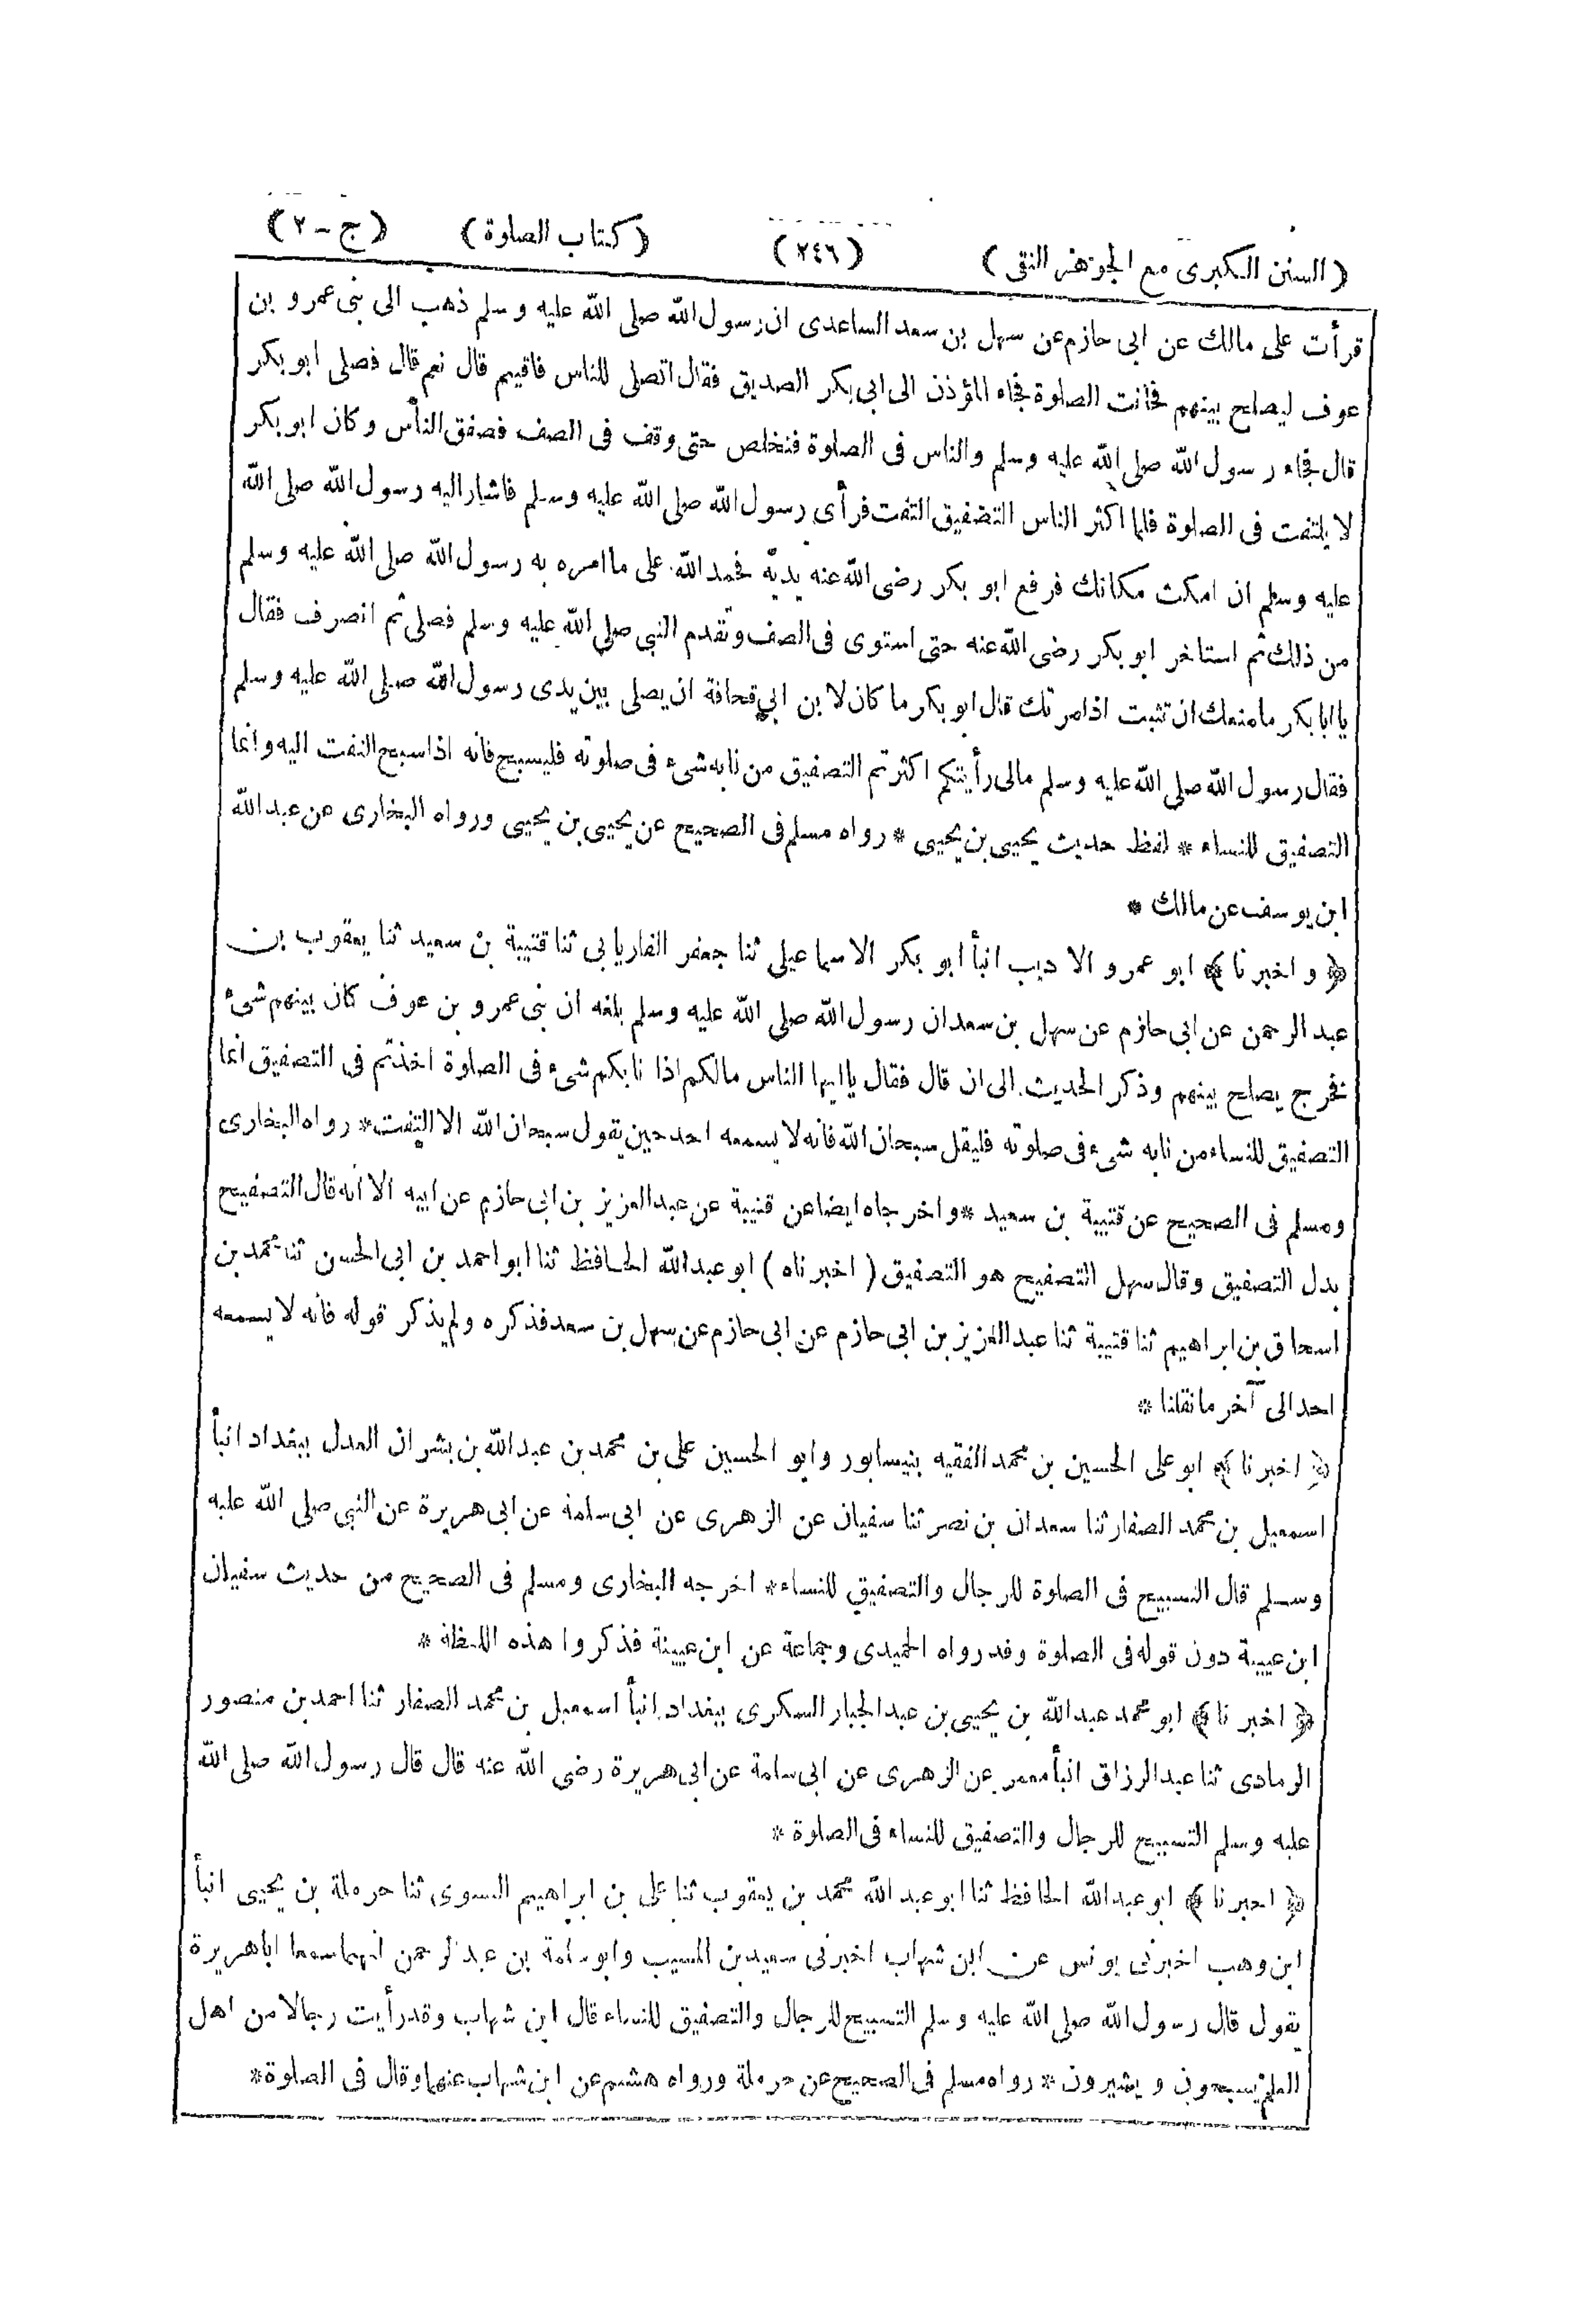 (السنن الكبرى مع الجوهر النقى) (٢٤٦) (كتاب الصلوة) (ج - ٢)
قرأت على مالك عن ابى حازم عن سهل بن سعد الساعدى ان رسول الله صلى الله عليه وسلم ذهب الى بنى عمرو بن
عوف ليصلح بينهم فحانت الصلوة فجاء المؤذن الى ابى بكر الصديق فقال اتصلى للناس فاقيم قال نعم قال فصلى ابو بكر
قال فجاء رسول الله صلى الله عليه وسلم والناس فى الصلوة فتخلص حتى وقف فى الصف فصفق الناس وكان ابو بكر
لا يلتفت فى الصلوة فلما اكثر الناس التصفيق التفت فرأى رسول الله صلى الله عليه وسلم فاشار اليه رسول الله صلى الله
عليه وسلم ان امكث مكانك فرفع ابو بكر رضى الله عنه يديه فحمد الله على ما امره به رسول الله صلى الله عليه وسلم
من ذلك ثم استاخر ابو بكر رضى الله عنه حتى استوى فى الصف وتقدم النبى صلى الله عليه وسلم فصلى ثم انصرف فقال
يا ابا بكر ما منعك ان تثبت اذ امرتك قال ابو بكر ما كان لا بن ابى قحافة ان يصلى بين يدى رسول الله صلى الله عليه وسلم
فقال رسول الله صلى الله عليه وسلم مالى رأيتكم اكثرتم التصفيق من نابه شىء فى صلوته فليسبح فانه اذا سبح التفت اليه وانما
التصفيق للنساء * لفظ حديث يحيى بن يحيى * رواه مسلم فى الصحيح عن يحيى بن يحيى ورواه البخارى عن عبد الله
ابن يوسف عن مالك *
﴿ و اخبرنا ﴾ ابو عمرو الاديب انبأ ابو بكر الاسماعيلى ثنا جعفر الفاريابى ثنا قتيبة بن سعيد ثنا يعقوب بن
عبد الرحمن عن ابى حازم عن سهل بن سعد ان رسول الله صلى الله عليه وسلم بلغه ان بنى عمرو بن عوف كان بينهم شىء
فخرج يصلح بينهم وذكر الحديث الى ان قال فقال يا ايها الناس مالكم اذا نابكم شىء فى الصلوة اخذتم فى التصفيق انما
التصفيق للنساء من نابه شىء فى صلوته فليقل سبحان الله فانه لا يسمعه احد حين يقول سبحان الله الا التفت * رواه البخارى
ومسلم فى الصحيح عن قتيبة بن سعيد * واخرجاه ايضا عن قتيبة عن عبد العزيز بن ابى حازم عن ابيه الا انه قال التصفيح
بدل التصفيق وقال سهل التصفيح هو التصفيق ( اخبرناه ) ابو عبد الله الحافظ ثنا ابو احمد بن ابى الحسن ثنا محمد بن
اسحاق بن ابراهيم ثنا قتيبة ثنا عبد العزيز بن ابى حازم عن ابى حازم عن سهل بن سعد فذكره ولم يذكر قوله فانه لا يسمعه
احد الى آخر ما نقلنا *
﴿ اخبرنا ﴾ ابو على الحسين بن محمد الفقيه بنيسابور وابو الحسين على بن محمد بن عبد الله بن بشران العدل ببغداد انبأ
اسمعيل بن محمد الصفار ثنا سعدان بن نصر ثنا سفيان عن الزهرى عن ابى سلمة عن ابى هريرة عن النبى صلى الله عليه
وسلم قال التسبيح فى الصلوة للرجال والتصفيق للنساء * اخرجه البخارى ومسلم فى الصحيح من حديث سفيان
ابن عيينة دون قوله فى الصلوة وقد رواه الحميدى وجماعة عن ابن عيينة فذكروا هذه اللفظة *
﴿ اخبرنا ﴾ ابو محمد عبد الله بن يحيى بن عبد الجبار السكرى ببغداد انبأ اسمعيل بن محمد الصفار ثنا احمد بن منصور
الرمادى ثنا عبد الرزاق انبأ معمر عن الزهرى عن ابى سلمة عن ابى هريرة رضى الله عنه قال قال رسول الله صلى الله
عليه وسلم التسبيح للرجال والتصفيق للنساء فى الصلوة *
﴿ اخبرنا ﴾ ابو عبد الله الحافظ ثنا ابو عبد الله محمد بن يعقوب ثنا على بن ابراهيم النسوى ثنا حرملة بن يحيى انبأ
ابن وهب اخبرنى يونس عن ابن شهاب اخبرنى سعيد بن المسيب وابو سلمة بن عبد الرحمن انهما سمعا ابا هريرة
يقول قال رسول الله صلى الله عليه وسلم التسبيح للرجال والتصفيق للنساء قال ابن شهاب وقد رأيت رجالا من اهل
العلم يسبحون ويشيرون * رواه مسلم فى الصحيح عن حرملة ورواه هشيم عن ابن شهاب عنهما وقال فى الصلوة *